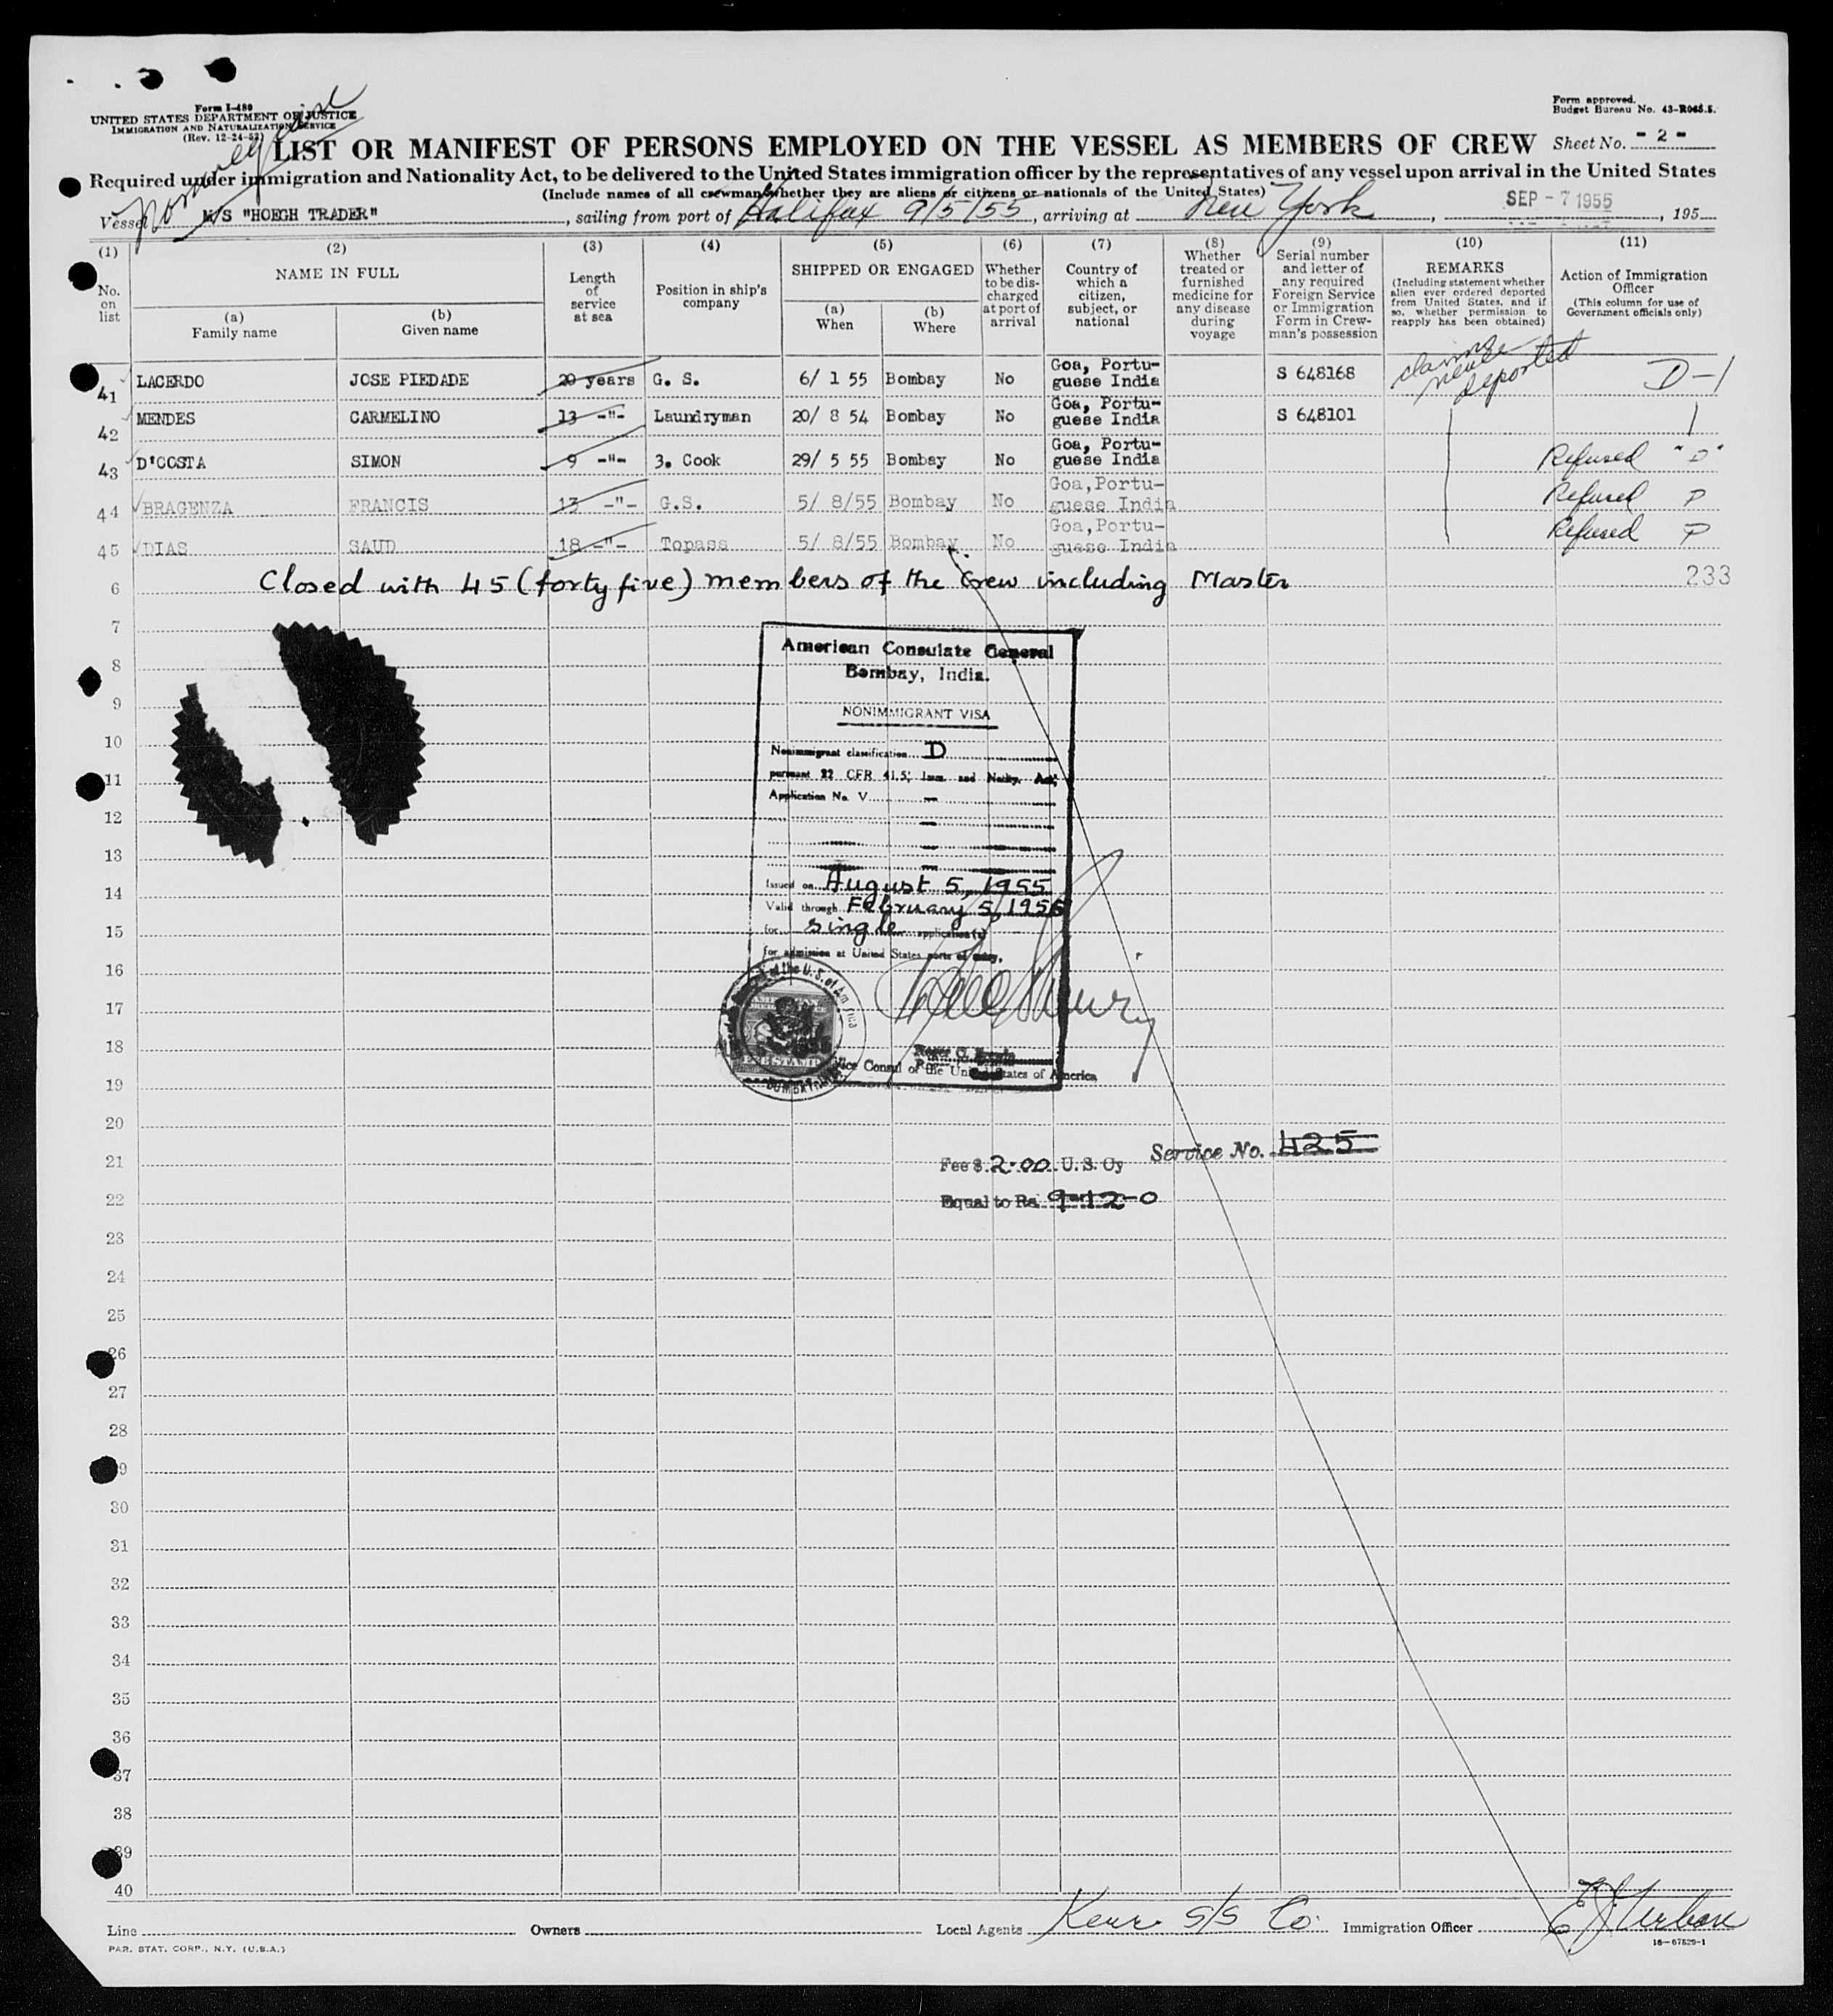 Form I-480
UNITED STATES DEPARTMENT OF JUSTICE
IMMIGRATION AND NATURALIZATION SERVICE
(Rev. 12-24-52)
Form approved.
Budget Bureau No. 43-R065.5.
LIST OR MANIFEST OF PERSONS EMPLOYED ON THE VESSEL AS MEMBERS OF CREW
Sheet No. - 2 -
Required under immigration and Nationality Act, to be delivered to the United States immigration officer by the representatives of any vessel upon arrival in the United States
(Include names of all crewman whether they are aliens or citizens or nationals of the United States)
Vessel M/S "HOEGH TRADER", sailing from port of Halifax 9/5/55, arriving at New York, SEP - 7 1955, 195
(1) No. on list
(2) NAME IN FULL
(a) Family name
(b) Given name
(3) Length of service at sea
(4) Position in ship's company
(5) SHIPPED OR ENGAGED
(a) When
(b) Where
(6) Whether to be discharged at port of arrival
(7) Country of which a citizen, subject, or national
(8) Whether treated or furnished medicine for any disease during voyage
(9) Serial number and letter of any required Foreign Service or Immigration Form in Crewman's possession
(10) REMARKS (Including statement whether alien ever ordered deported from United States, and if so, whether permission to reapply has been obtained)
(11) Action of Immigration Officer (This column for use of Government officials only)
41 LACERDO JOSE PIEDADE 20 years G. S. 6/ 1 55 Bombay No Goa, Portuguese India S 648168 claims never deported D-1
42 MENDES CARMELINO 13 -"- Laundryman 20/ 8 54 Bombay No Goa, Portuguese India S 648101
43 D'COSTA SIMON 9 -"- 3. Cook 29/ 5 55 Bombay No Goa, Portuguese India Refused "D"
44 BRAGENZA FRANCIS 13 -"- G.S. 5/ 8/55 Bombay No Goa, Portuguese India Refused P
45 DIAS SAUD 18 -"- Topass 5/ 8/55 Bombay No Goa, Portuguese India Refused P
6 Closed with 45 (forty five) members of the Crew including Master 233
7
8
9
10
11
12
13
14
15
16
17
18
19
20
21
22
23
24
25
26
27
28
29
30
31
32
33
34
35
36
37
38
39
40
American Consulate General
Bombay, India.
NONIMMIGRANT VISA
Nonimmigrant classification D
pursuant 22 CFR 41.5; Imm. and Natlty. Act;
Application No. V -
Issued on August 5, 1955
Valid through February 5, 1956
for single application(s)
for admission at United States ports of entry.
Vice Consul of the United States of America
Service No. 425
Fee $ 2.00 U. S. Cy
Equal to Rs. 9-12-0
Line
Owners
Local Agents Kerr S/S Co.
Immigration Officer
PAR. STAT. CORP., N.Y. (U.S.A.)
16-67529-1